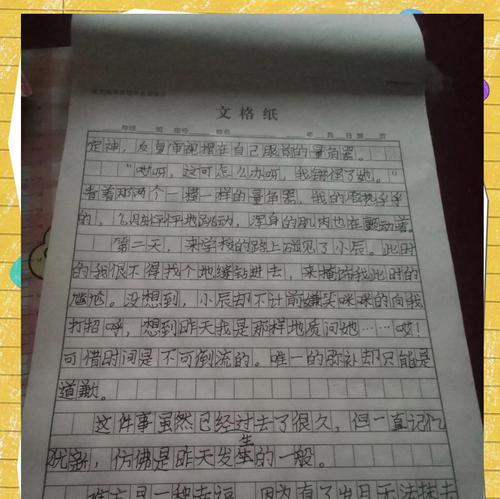 文格纸
定神，反复审视摆在自己眼前的量角器。
“哎呀，这可怎么办呀，我错怪了她。”
看着那两个一摸一样的量角器，我的脸热辣辣
的，心怦怦怦地跳动，浑身的肌肉也在颤动着。
第二天，来学校的路上碰见了小辰。此时
的我恨不得找个地缝钻进去，来掩饰我此时的
尴尬。没想到，小辰却不计前嫌笑咪咪的向我
打招呼，想到昨天我是那样地质问她……哎！
可惜时间是不可倒流的。唯一的弥补却只能是
道歉。
这件事虽然已经过去了很久，但一直记忆
犹新，仿佛是昨天发生的一般。